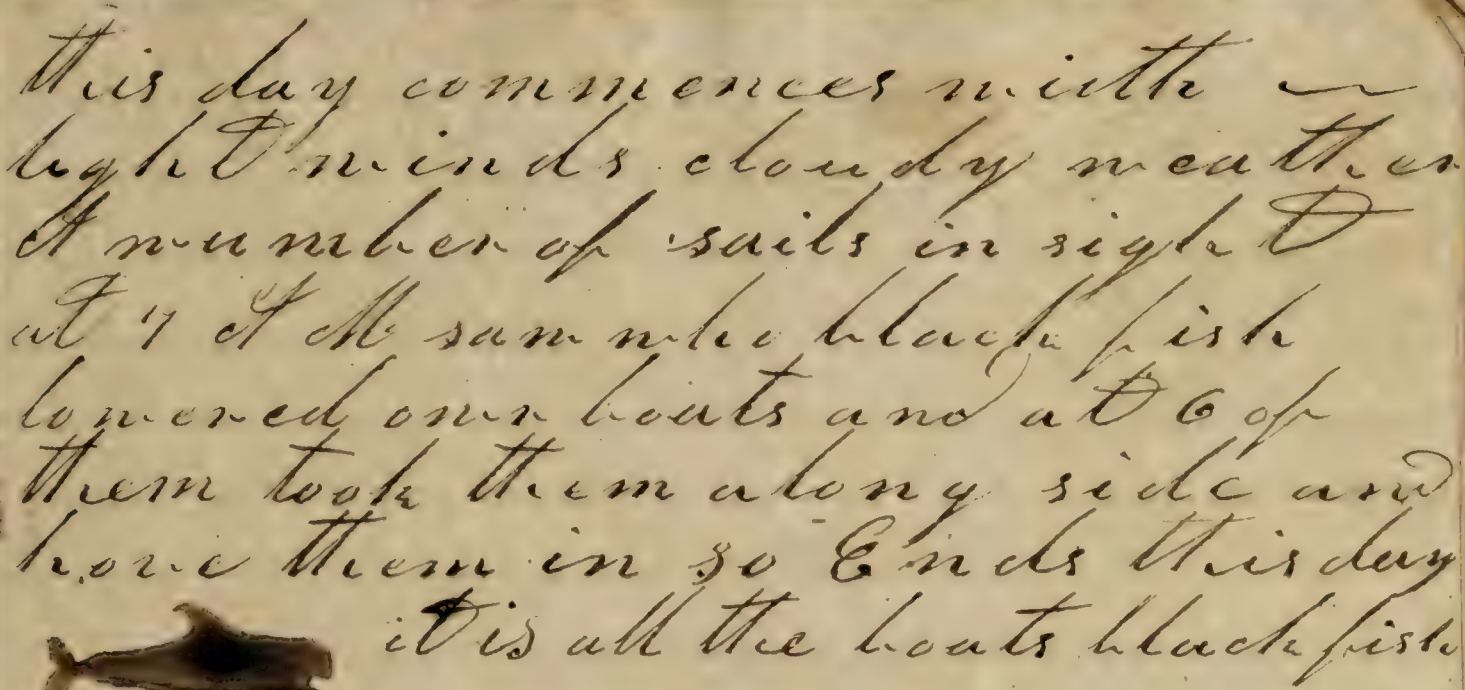 this day commences with
light winds cloudy weather
A number of sails in sight
at 7 A M saw black fish
lowered our boats and at 6 of
them took them along side and
hove them in so Ends this day
it is all the boats black fish